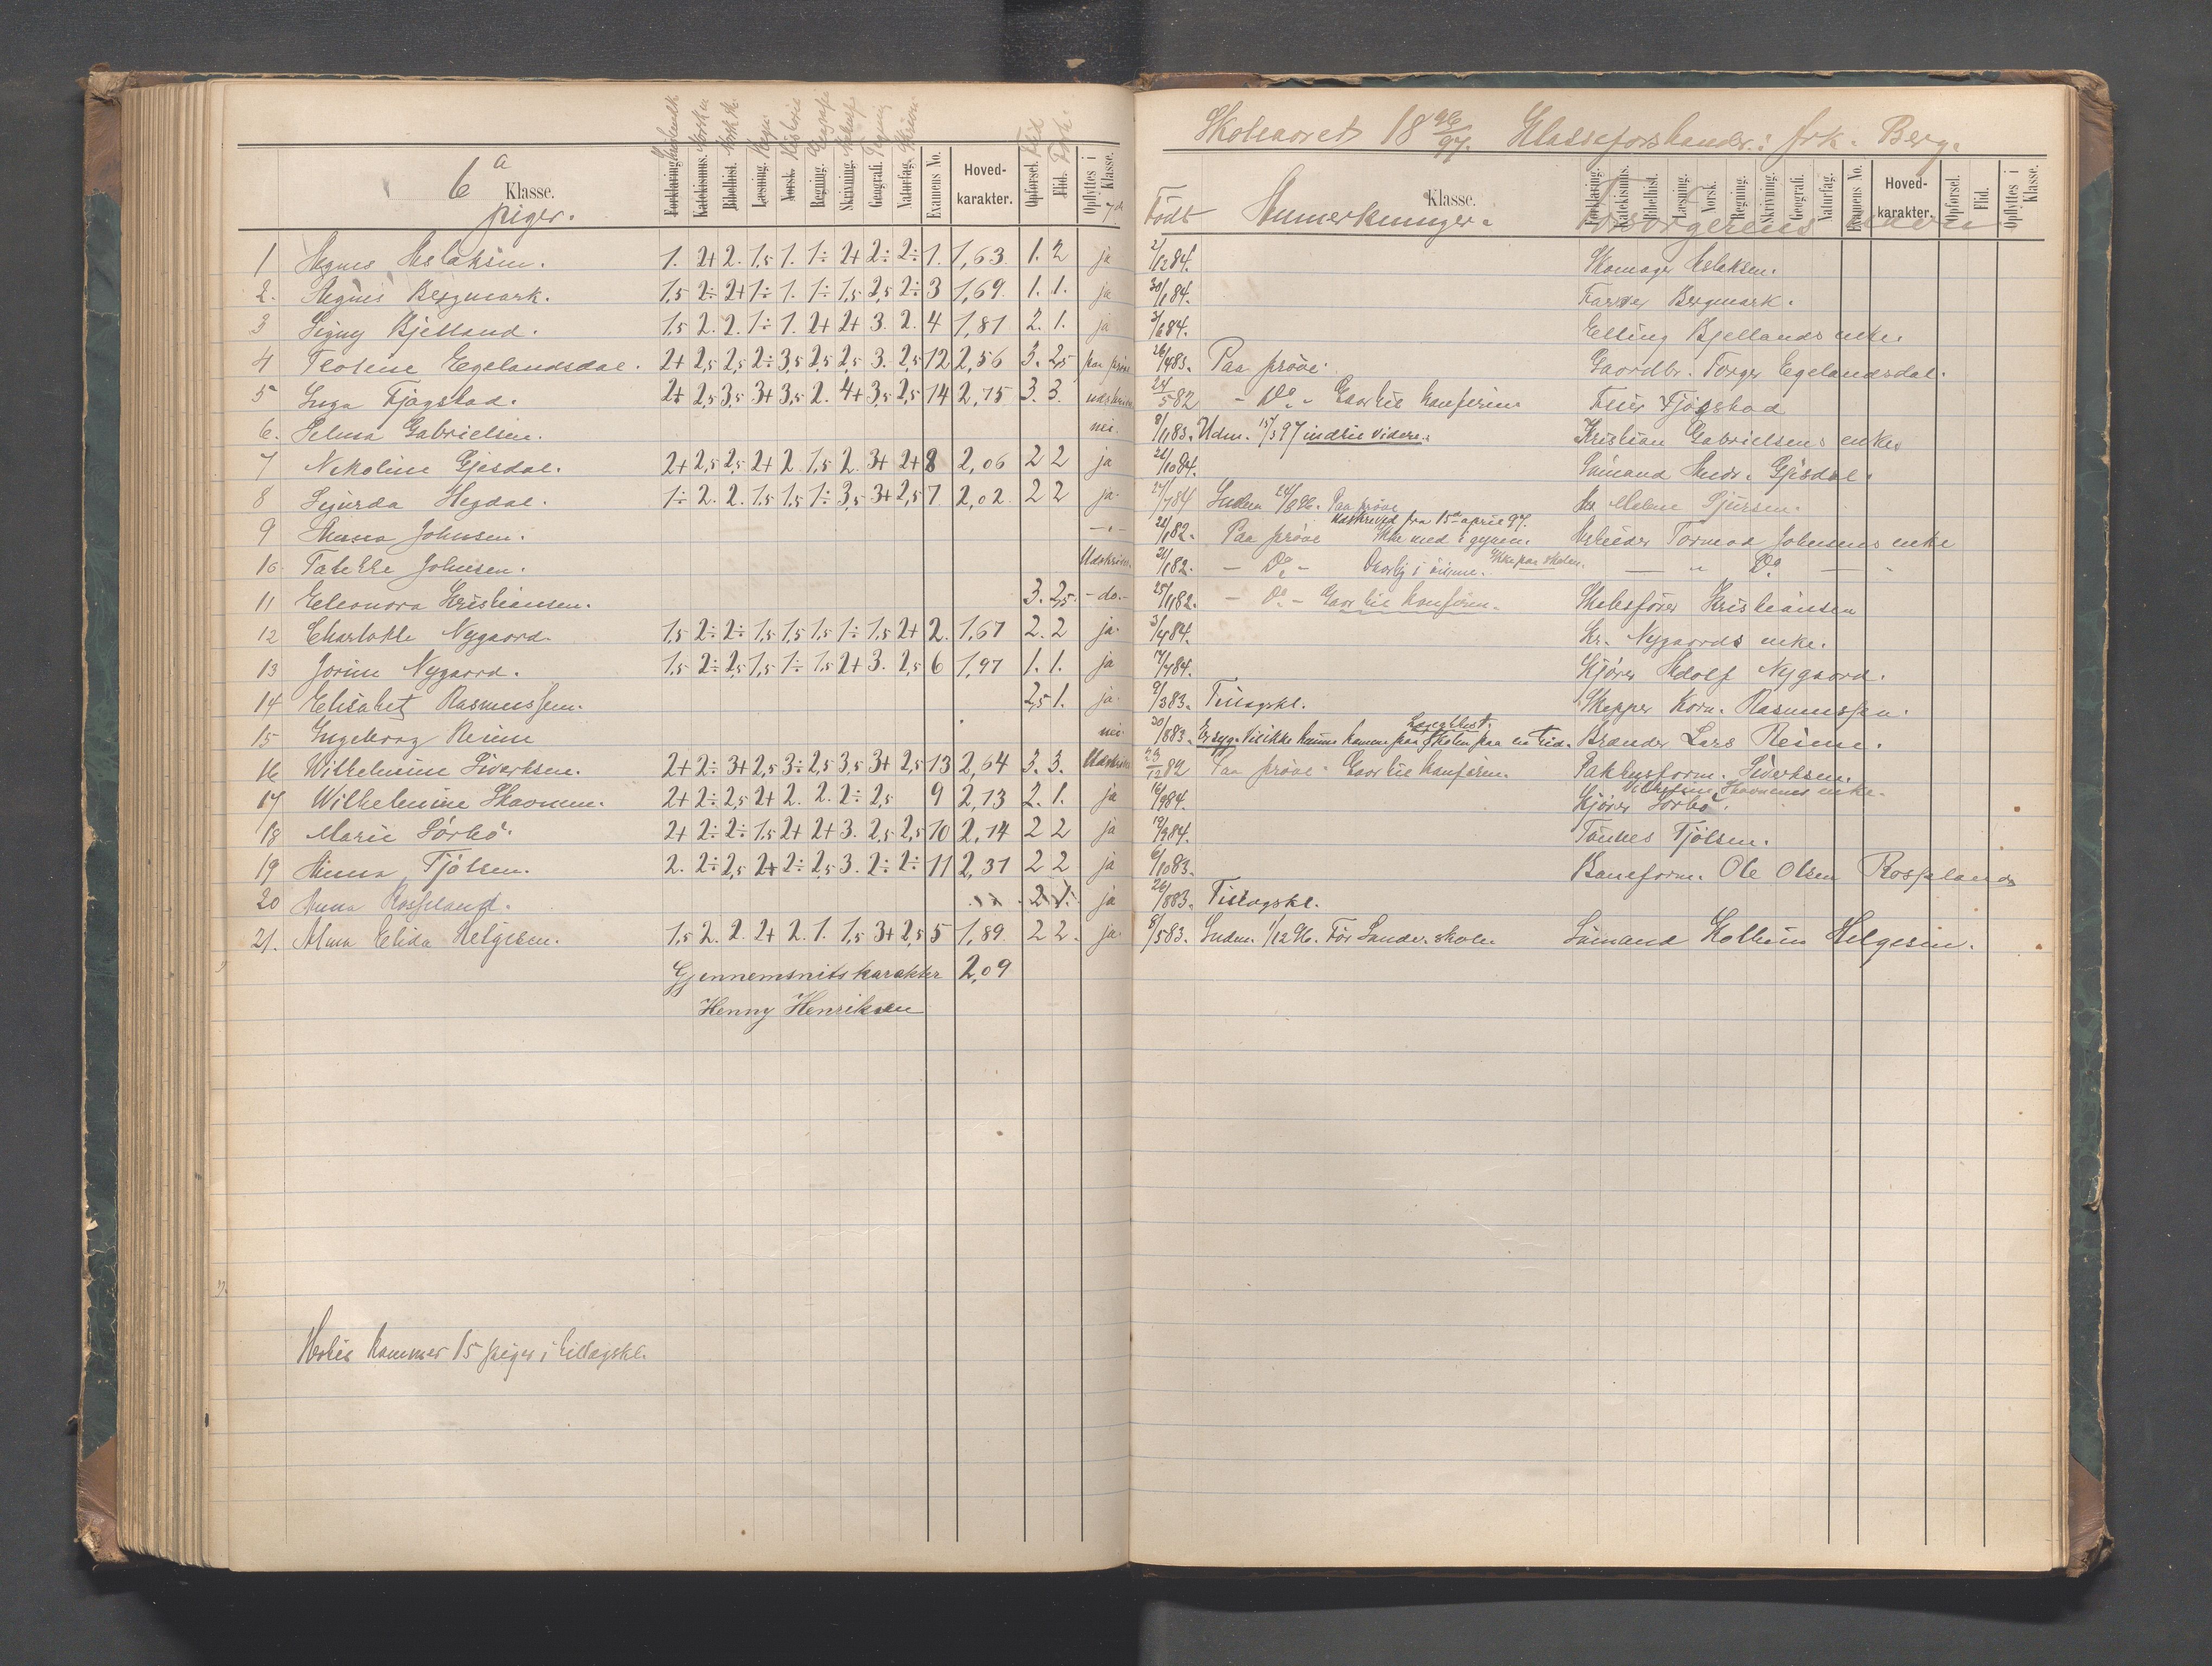 6a Klasse.
piger.
Forklaring. Katekismus. Bibelhist. Læsning. Norsk. Regning. Skrivning. Geografi. Naturfag. Examens No. Hoved-karakter. Opførsel. Flid. Opflyttes i Klasse.
7de
1 Agnes Aslaksen. 1. 2+ 2. 1,5 1. 1÷ 2+ 2÷ 2÷ 1. 1,63 1. 2 ja
2. Agnes Bergmark. 1,5 2÷ 2+ 1÷ 1. 1÷ 1,5 2,5 2÷ 3 1,69 1. 1. ja
3 Signy Bjelland. 1,5 2. 2. 1÷ 1. 2+ 2+ 3. 2. 4 1,81 2. 1. ja
4 Trotine Egelandsdal. 2+ 2,5 2,5 2÷ 3,5 2,5 2,5 3. 2,5 12 2,56 3. 2,5 paa prøve
5 Inga Fjøgstad. 2+ 2,5 3,5 3+ 3,5 2. 4+ 3,5 2,5 14 2,75 3. 3. udskreven
6. Selma Gabrielsen. nei.
7 Nikoline Gjesdal. 2+ 2,5 2,5 2+ 2 1,5 2. 3+ 2+ 8 2,06 2 2 ja
8 Sigurda Hegdal. 1÷ 2. 2. 1,5 1,5 1÷ 3,5 3+ 2,5 7. 2,02 2 2 ja.
9 Anna Johnsen. - " -
10. Tabette Johnsen. Udskreven.
11 Eleonora Kristiansen. 3. 2,5. - do. -
12 Charlotte Nygaard. 1,5 2÷ 2÷ 1,5 1,5 1,5 1÷ 1,5 2+ 2. 1,67 2. 2 ja.
13 Jorine Nygaard. 1,5 2÷ 2,5 1,5 1÷ 1,5 2+ 3. 2,5 6 1,97 1. 1. ja
14 Elisabet Rasmussen. 2,5 1. ja.
15 Ingeborg Reime nei
16 Wilhelmine Sivertsen. 2+ 2÷ 3+ 2,5 3÷ 2,5 3,5 3+ 2,5 13 2,64 3. 3. Udskreven
17 Wilhelmine Skavnem. 2+ 2÷ 2,5 2+ 2. 2. 2÷ 2,5 9 2,13 2. 1. ja
18 Marie Sørbø. 2+ 2÷ 2÷ 1,5 2+ 2+ 3. 2,5 2,5 10 2,14 2 2 ja
19 Anna Tjølsen. 2. 2÷ 2,5 2+ 2÷ 2,5 3. 2÷ 2÷ 11 2,31 2 2 ja
20 Anna Rosseland. 2. 1. ja
21. Alma Elida Helgesen. 1,5 2. 2. 2+ 2. 1. 1,5 3+ 2,5 5 1,89. 2 2. ja.
Gjennemsnitskarakter 2,09
Henny Henriksen
Hertil kommer 15 piger i tillagskl.
Skoleaaret 1896/97. Klasseforstander: frk. Berg.
Klasse.
Forklaring. Katekismus. Bibelhist. Læsning. Norsk. Regning. Skrivning. Geografi. Naturfag. Examens No. Hoved-karakter. Opførsel. Flid. Opflyttes i Klasse.
Født Anmerkninger. Forsørgerens navn
2/12 84. Skomager Aslaksen.
30/1 84. Farver Bergmark.
3/6 84. Elling Bjellands enke.
26/4 83. Paa prøve. Gaardbr. Torger Egelandsdal.
24/5 82 - Do. - Gaar til konfirm. Feier Fjøgstad
8/11 83. Udm. 15/3 97 indtil videre. Kristian Gabrielsens enke
26/10 84. Sømand Andr. Gjesdal.
27/7 84 Indm 24/8 96. Paa prøve Malene Sjursen.
Udskreved fra 15de april 97.
24/1 82. Paa prøve Ikke med i gymn. Arbeider Tormod Johnsens enke
24/1 82. - Do. - Daarlig i øinene. Ikke paa skolen. - " Do -
25/11 82. - Do - Gaar til konfirm. Skibsfører Kristiansen
3/4 84. Kr. Nygaards enke.
17/4 84. Kjører Adolf Nygaard.
9/3 83. Tillagskl. Skipper Korn. Rasmussen.
Langblust.
30/8 83. Er syg. Vil ikke kunne komme paa skolen paa en tid. Brander Lars Reime.
23/12 82 Paa prøve. Gaar til konfirm. Pakhusform. Sivertsen.
Skavnems enke.
16/9 84. Kjører Sørbø.
19/3 84. Tønnes Tjølsen.
6/10 83. Baneform. Ole Olsen Rosseland
26/8 83. Tillagskl.
8/5 83. Indm. 1/12 96. Før Sandv. skole Sømand Kolbein Helgesen.